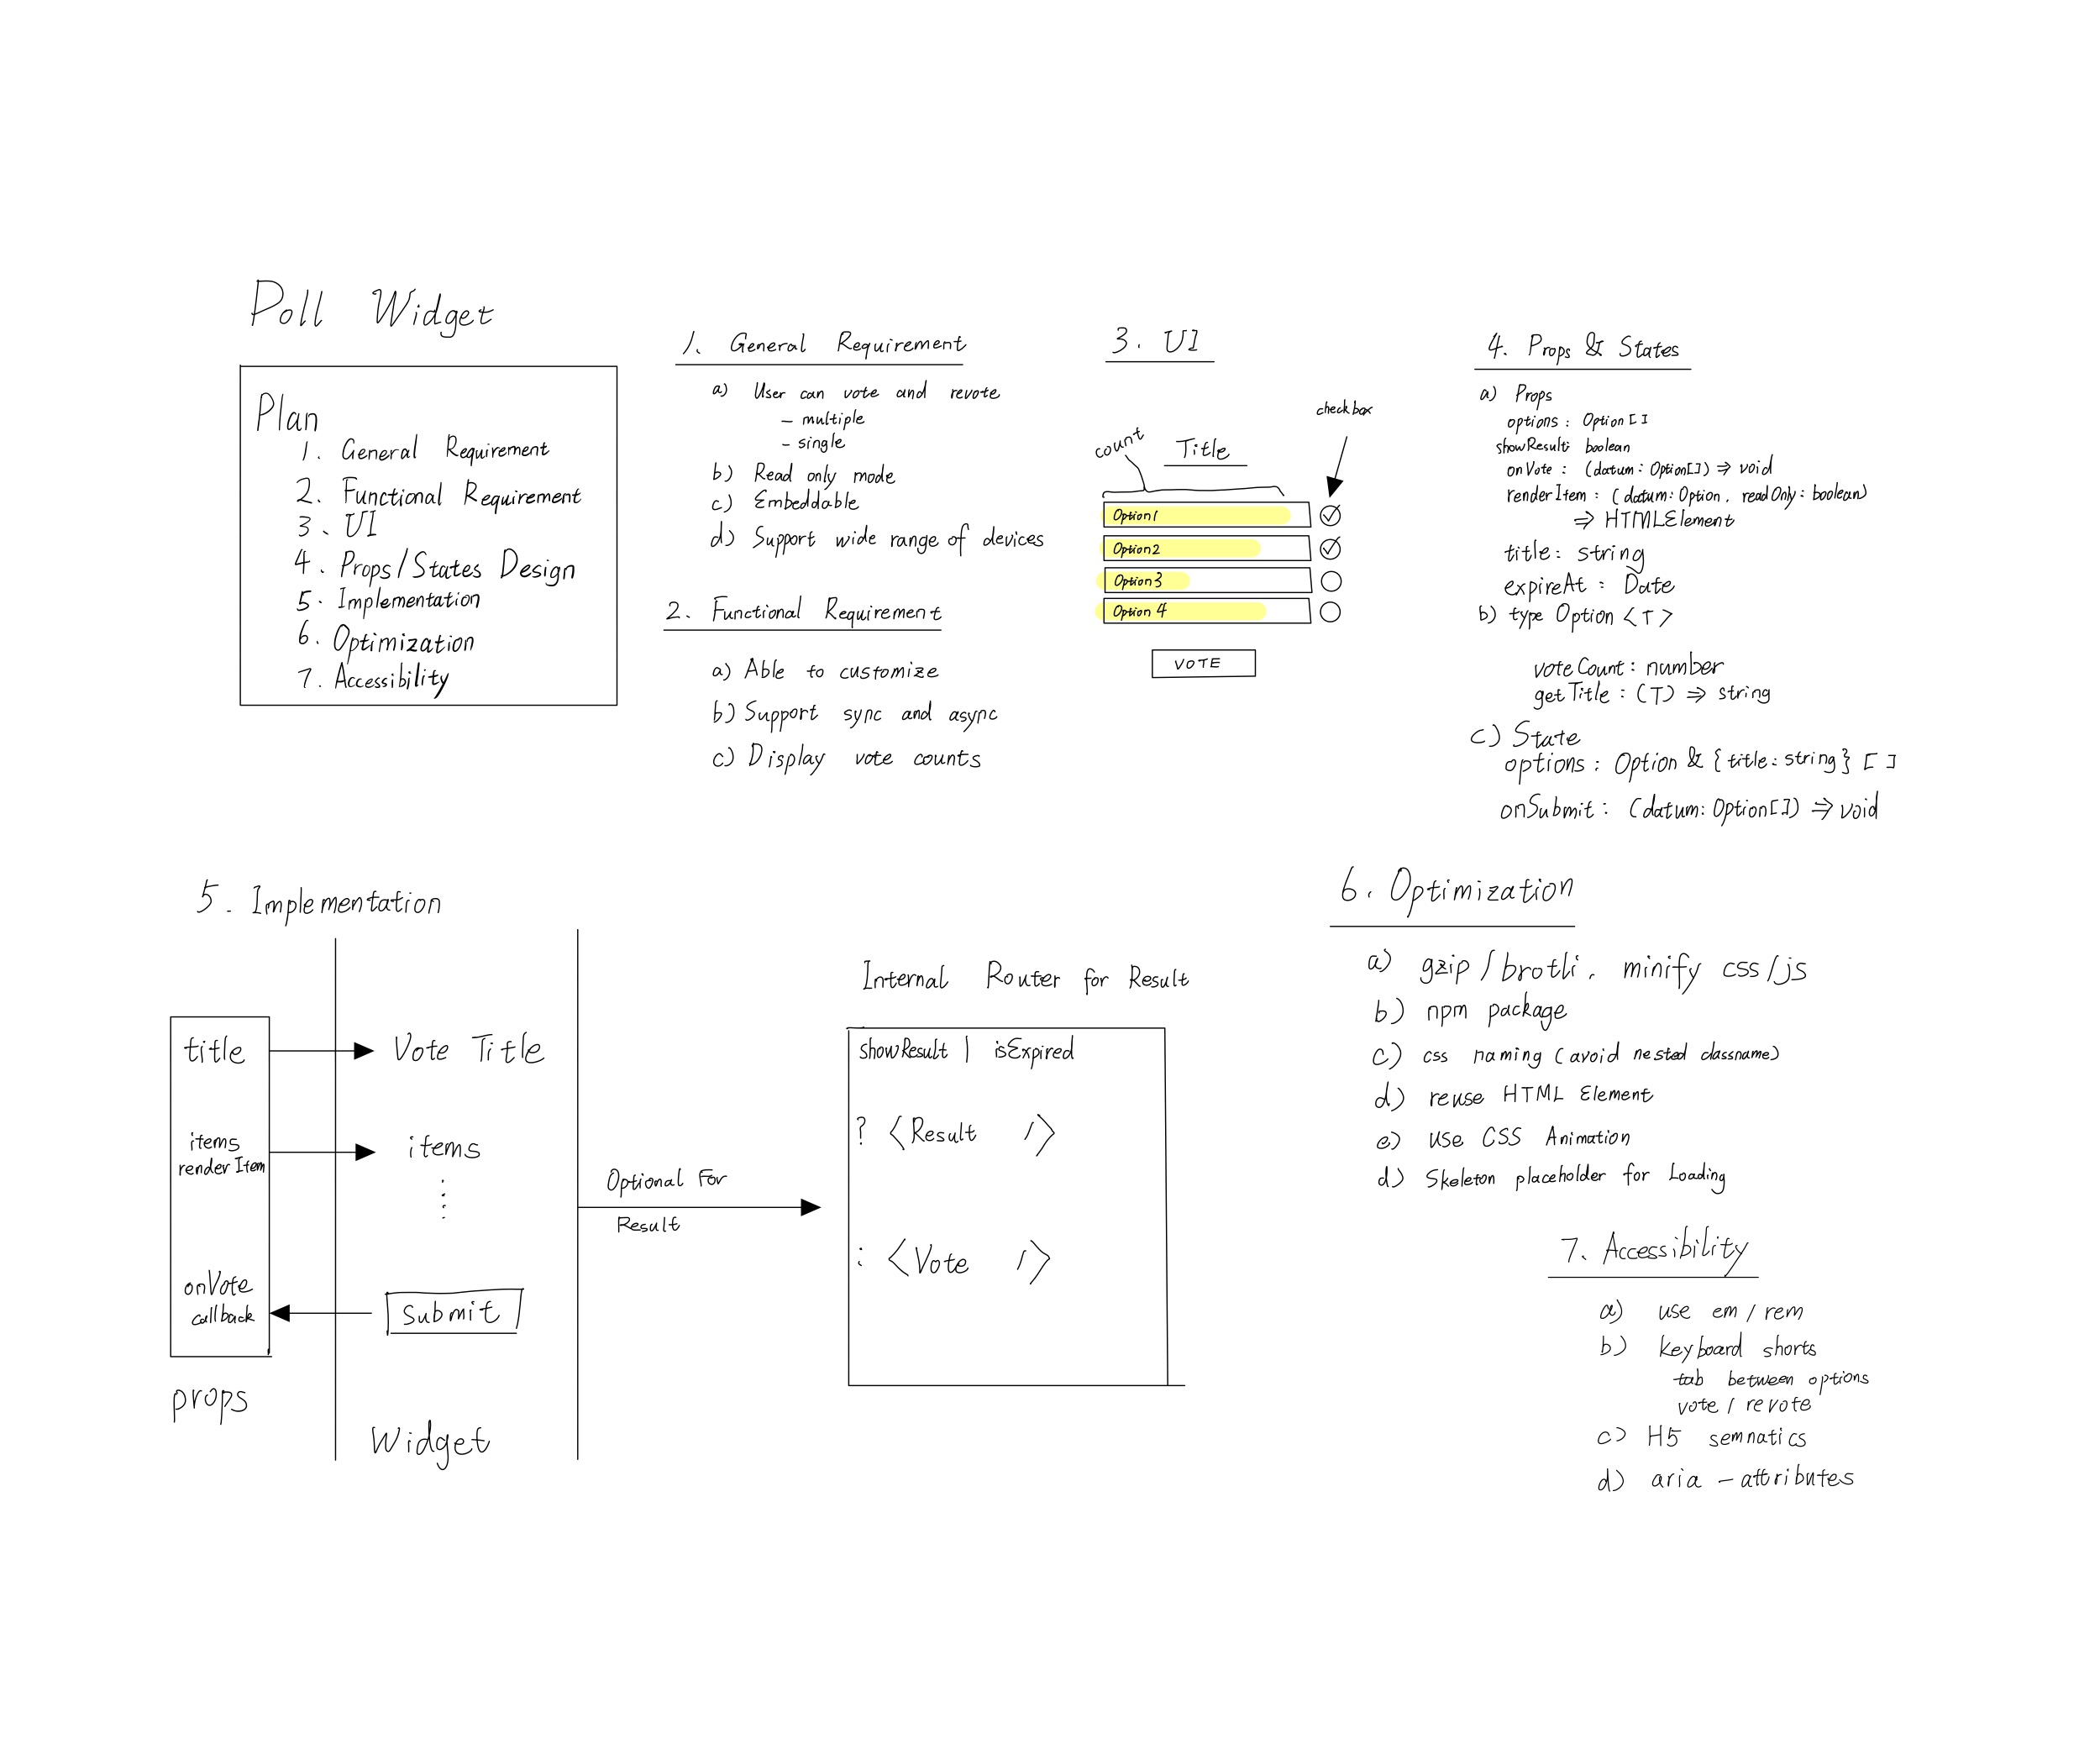 Poll Widget
Plan
1. General Requirement
2. Functional Requirement
3. UI
4. Props/States Design
5. Implementation
6. Optimization
7. Accessibility
1. General Requirement
a) User can vote and revote
- multiple
- single
b) Read only mode
c) Embeddable
d) Support wide range of devices
2. Functional Requirement
a) Able to customize
b) Support sync and async
c) Display vote counts
3. UI
check box
count
Title
Option1
Option2
Option3
Option 4
VOTE
4. Props & States
a) Props
options: Option[]
showResult: boolean
onVote: (datum: Option[]) => void
renderItem: (datum: Option, readOnly: boolean)
=> HTMLElement
title: string
expireAt: Date
b) type Option <T>
voteCount: number
getTitle: (T) => string
c) State
options: Option & {title: string} []
onSubmit: (datum: Option[]) => void
5. Implementation
title
items
render Item
onVote
callback
props
Vote Title
items
Submit
Widget
Optional For
Result
Internal Router for Result
showResult | isExpired
? <Result />
: <Vote />
6. Optimization
a) gzip/brotli, minify css/js
b) npm package
c) css naming (avoid nested classname)
d) reuse HTML Element
e) use CSS Animation
d) Skeleton placeholder for Loading
7. Accessibility
a) use em / rem
b) keyboard shorts
tab between options
vote / revote
c) H5 semnatics
d) aria - attributes